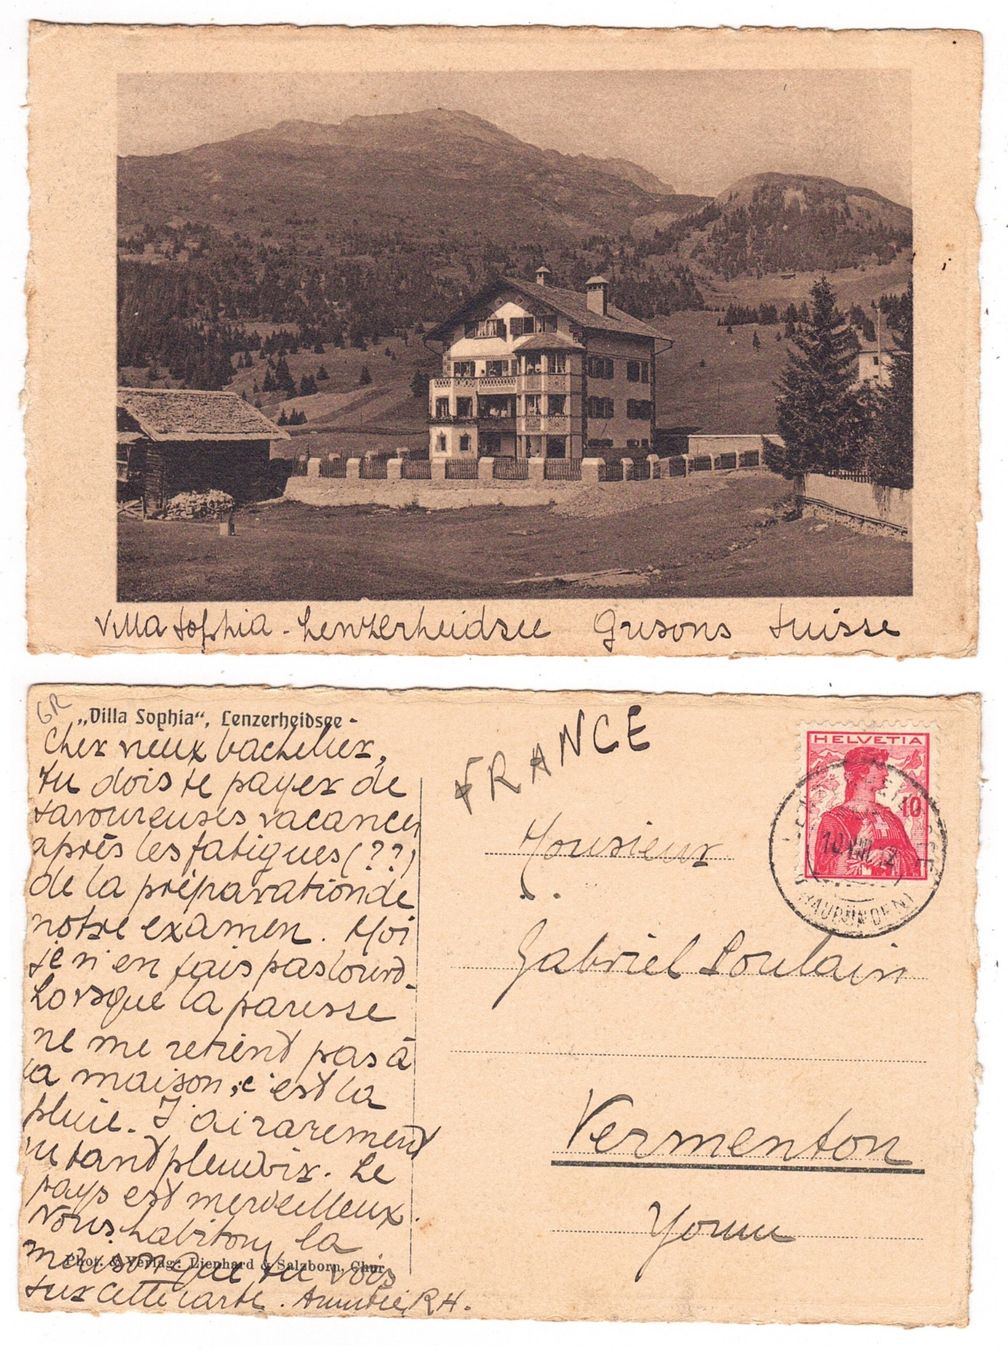 Villa Sophia - Lenzerheidsee Grisons Suisse
GR
„Villa Sophia“, Lenzerheidsee -
Cher vieux bachelier,
tu dois te payer de
savoureuses vacances
après les fatigues (??)
de la préparation de
notre examen. Moi
je n'en fais pas lourd -
Lorsque la paresse
ne me retient pas à
la maison, c'est la
pluie. J'ai rarement
vu tant pleuvoir. Le
pays est merveilleux.
Nous habitons la
maison que tu vois
sur cette carte. Amitiés, R H.
Phot. & Verlag: Lienhard & Salzborn, Chur
FRANCE
HELVETIA
10
(GRAUBÜNDEN)
Monsieur
Gabriel Poulain
Vermenton
Yonne